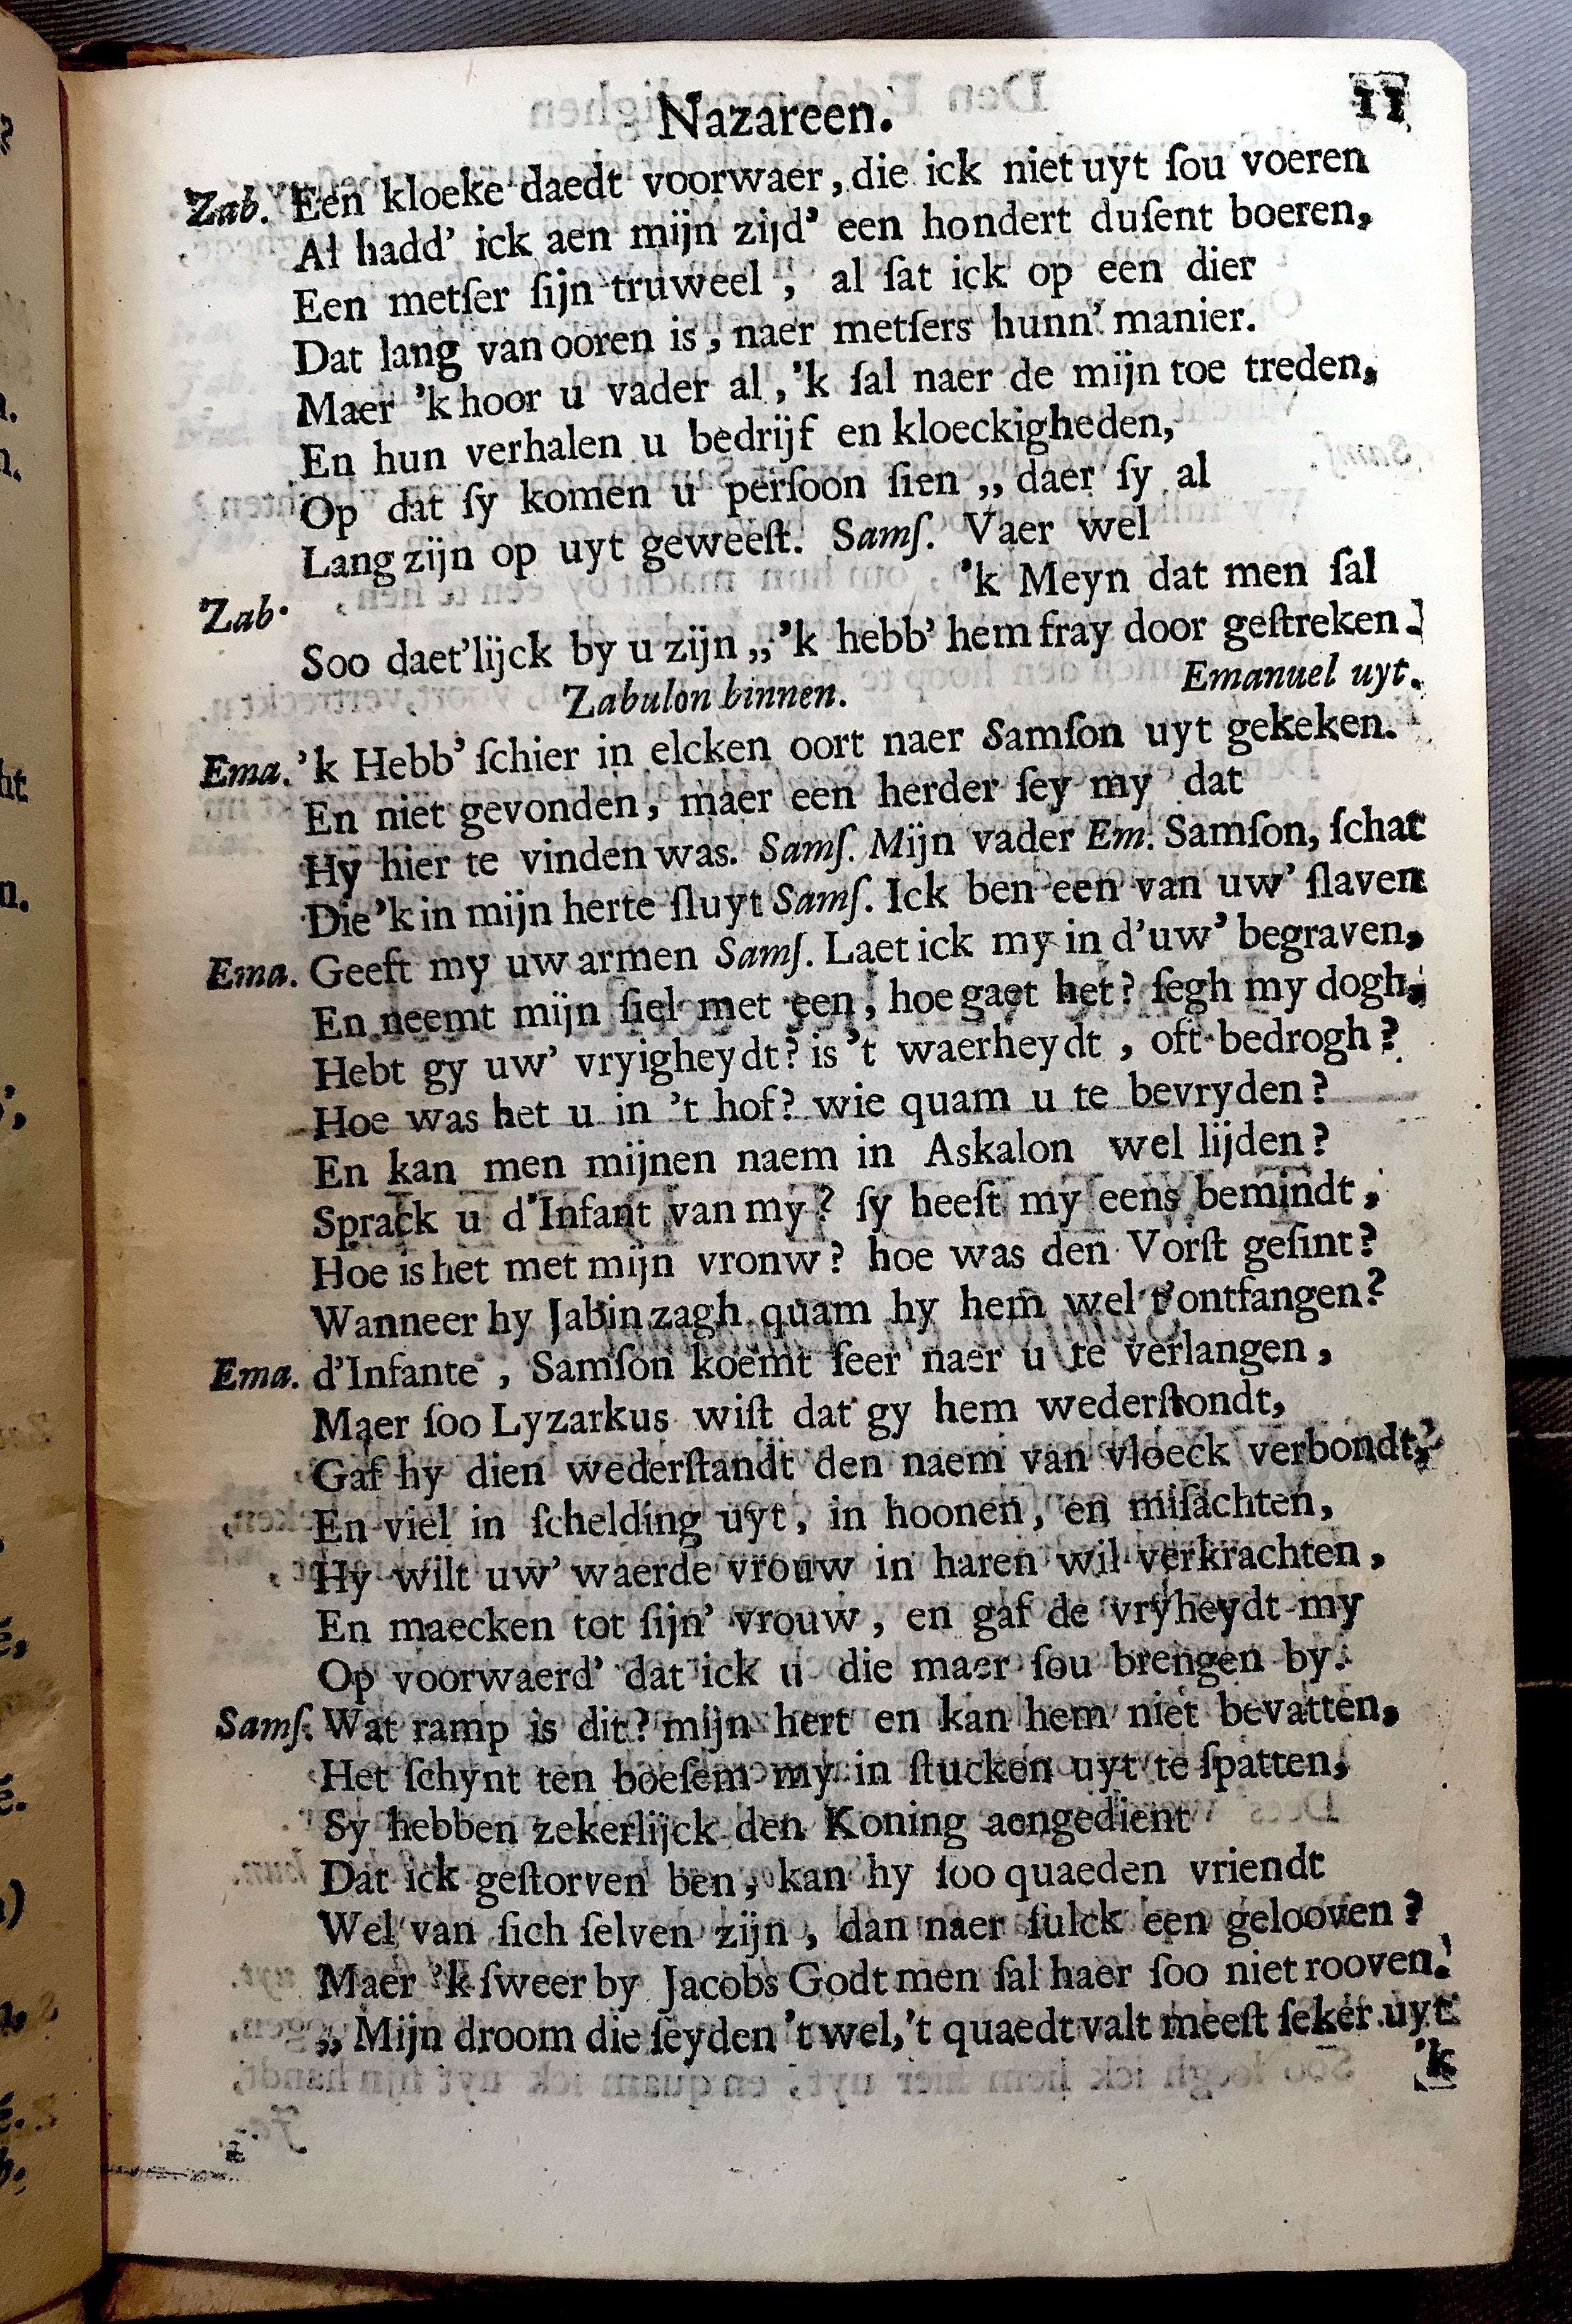 Nazareen. 11
Zab. Een kloeke daedt voorwaer, die ick niet uyt ſou voeren
Al hadd' ick aen mijn zijd' een hondert duſent boeren,
Een metſer ſijn truweel ,, al ſat ick op een dier
Dat lang van ooren is, naer metſers hunn' manier.
Maer 'k hoor u vader al, 'k ſal naer de mijn toe treden,
En hun verhalen u bedrijf en kloeckigheden,
Op dat ſy komen u perſoon ſien ,, daer ſy al
Lang zijn op uyt geweeſt. Samſ. Vaer wel
Zab. 'k Meyn dat men ſal
Soo daet'lijck by u zijn ,, 'k hebb' hem fray door geſtreken.
Zabulon binnen. Emanuel uyt.
Ema. 'k Hebb' ſchier in elcken oort naer Samſon uyt gekeken.
En niet gevonden, maer een herder ſey my dat
Hy hier te vinden was. Samſ. Mijn vader Em. Samſon, ſchat
Die 'k in mijn herte ſluyt Samſ. Ick ben een van uw' ſlaven
Ema. Geeft my uw armen Samſ. Laet ick my in d'uw' begraven,
En neemt mijn ſiel met een, hoe gaet het? ſegh my dogh,
Hebt gy uw' vryigheydt? is 't waerheydt, oft bedrogh?
Hoe was het u in 't hof? wie quam u te bevryden?
En kan men mijnen naem in Askalon wel lijden?
Sprack u d'Infant van my? ſy heeft my eens bemindt,
Hoe is het met mijn vronw? hoe was den Vorſt geſint?
Wanneer hy Jabin zagh quam hy hem wel t'ontfangen?
Ema. d'Infante, Samſon koemt ſeer naer u te verlangen,
Maer ſoo Lyzarkus wiſt dat gy hem wederſtondt,
Gaf hy dien wederſtandt den naem van vloeck verbondt,
En viel in ſchelding uyt, in hoonen, en miſachten,
Hy wilt uw' waerde vrouw in haren wil verkrachten,
En maecken tot ſijn' vrouw, en gaf de vryheydt my
Op voorwaerd' dat ick u die maer ſou brengen by.
Samſ. Wat ramp is dit? mijn hert en kan hem niet bevatten,
Het ſchynt ten boeſem my in ſtucken uyt te ſpatten,
Sy hebben zekerlijck den Koning aengedient
Dat ick geſtorven ben, kan hy ſoo quaeden vriendt
Wel van ſich ſelven zijn, dan naer ſulck een gelooven?
Maer 'k ſweer by Jacobs Godt men ſal haer ſoo niet rooven.
,, Mijn droom die ſeyden 't wel, 't quaedt valt meeſt ſeker uyt
'k